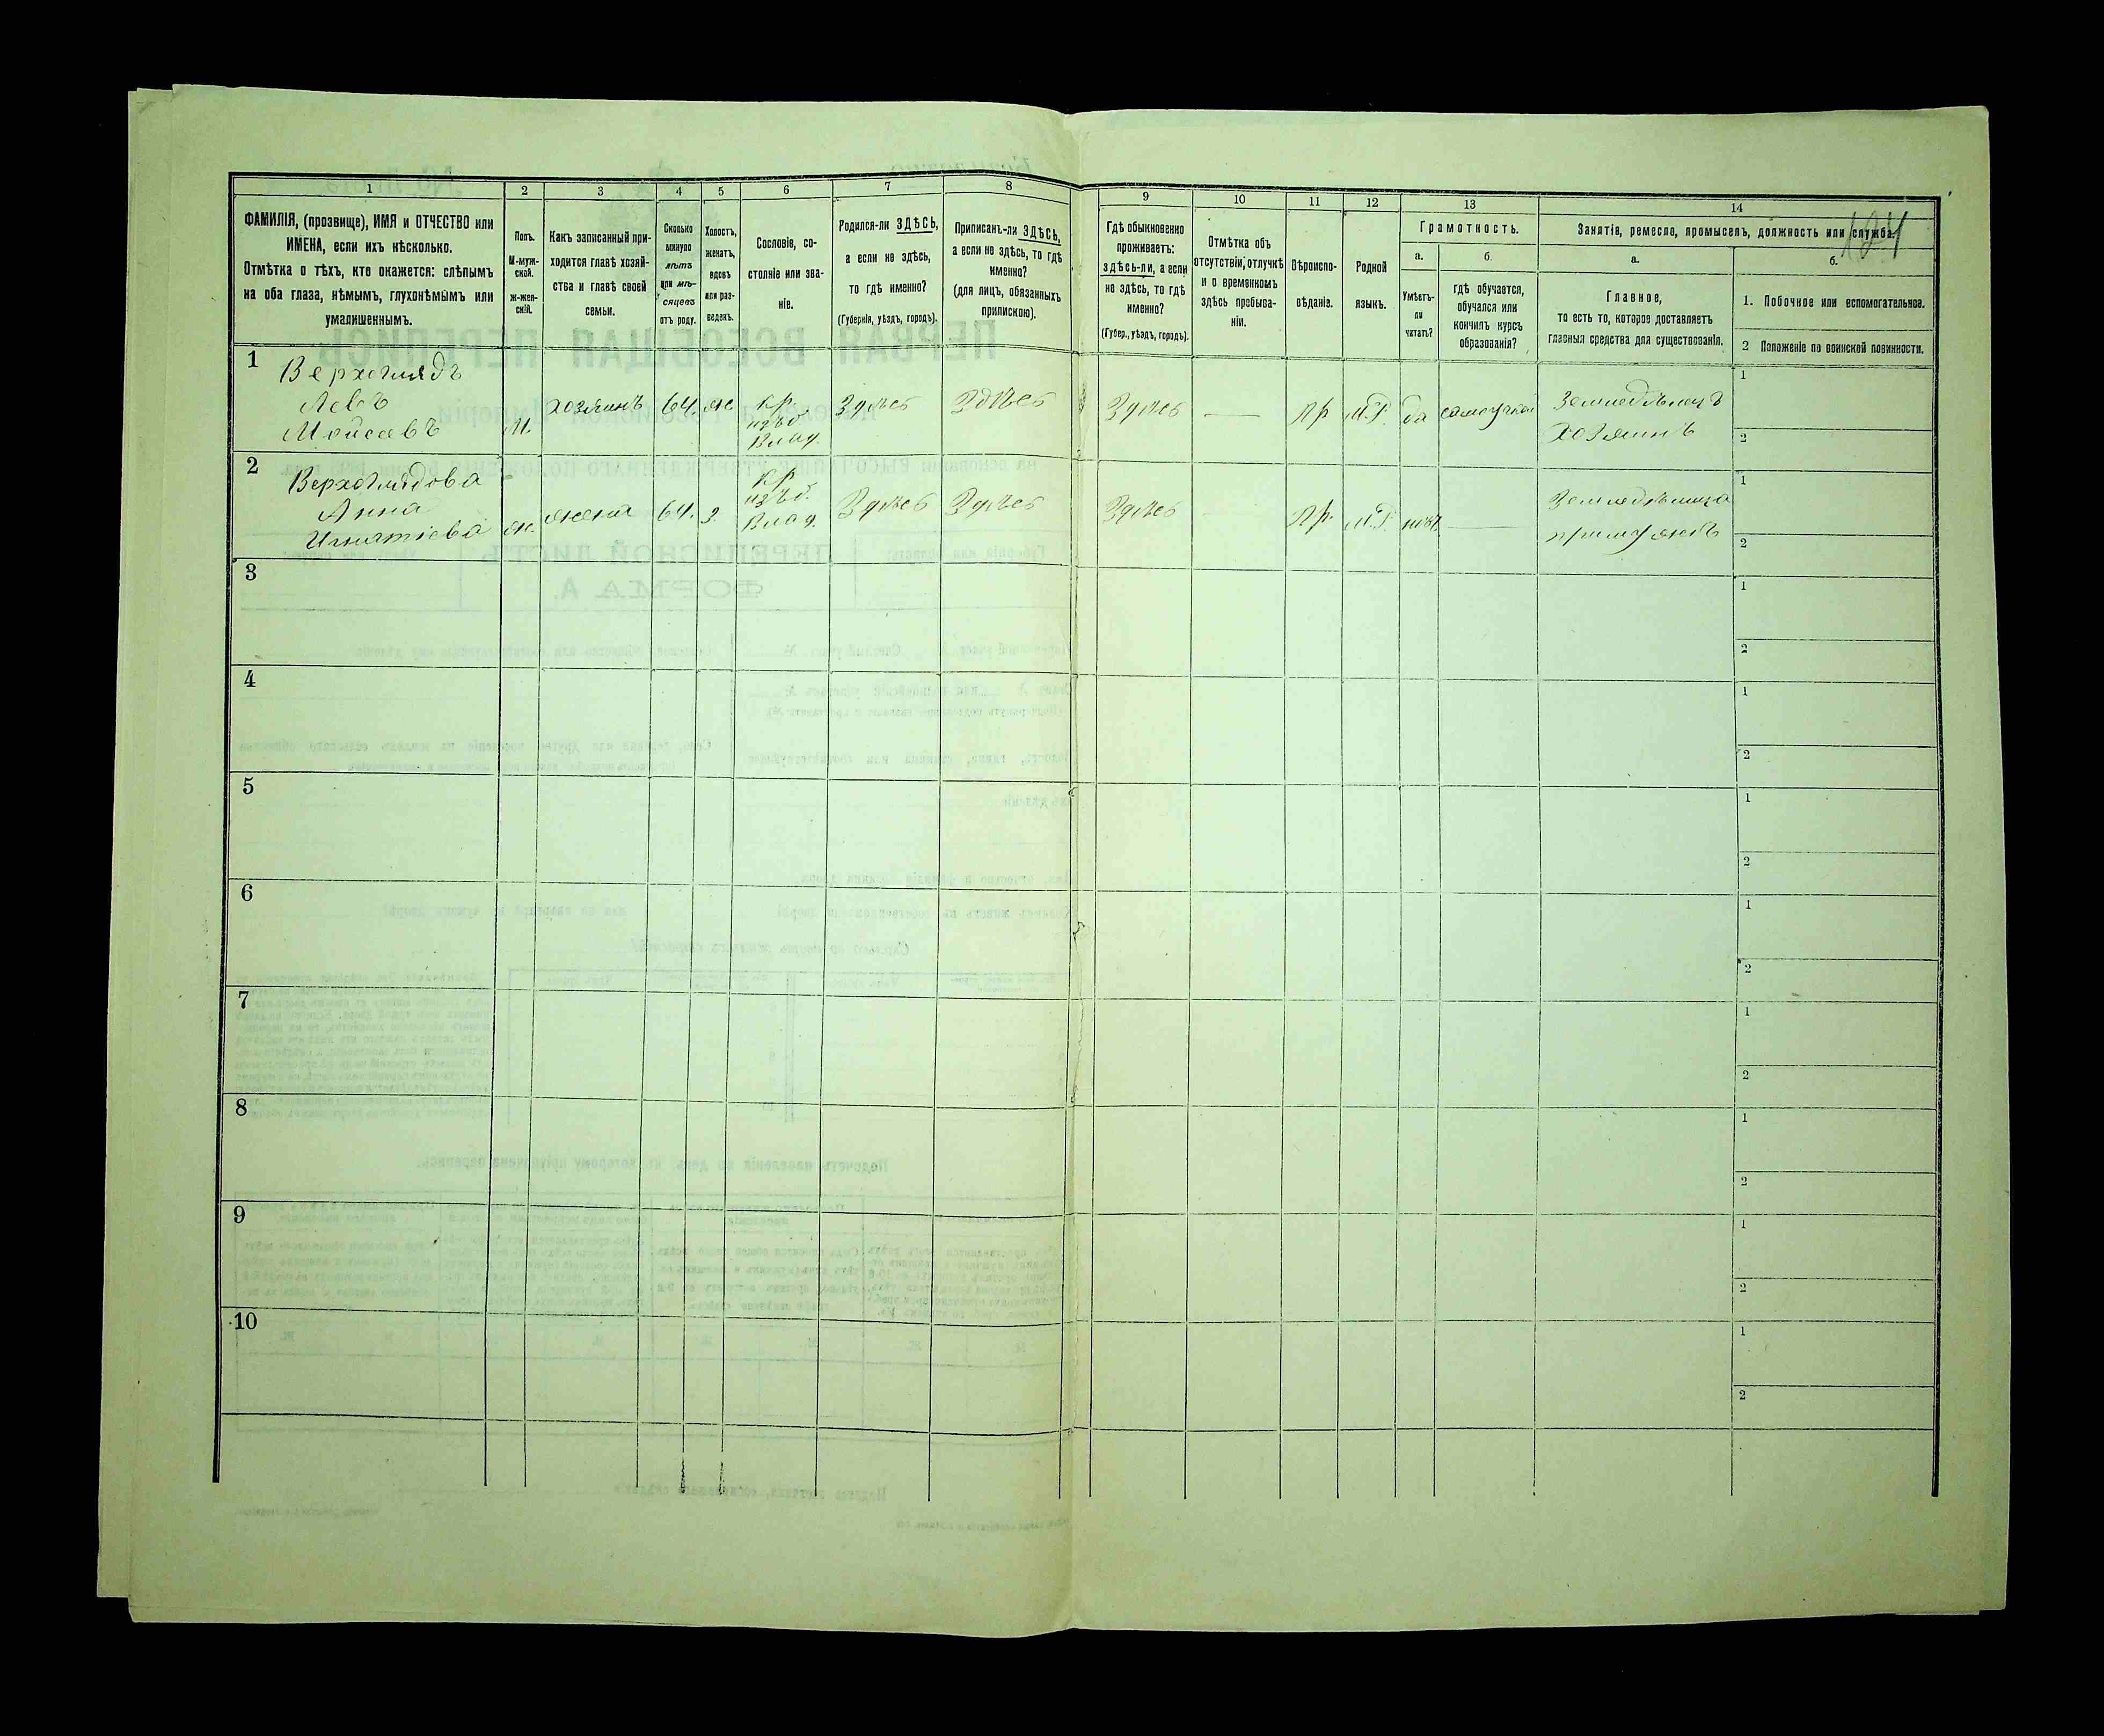 1 2 3 4 5 6 7 8 9 10 11 12 13 14
121
ФАМИЛІЯ, (прозвище), ИМЯ и ОТЧЕСТВО или
ИМЕНА, если ихъ нѣсколько.
Отмѣтка о тѣхъ, кто окажется: слѣпымъ
на оба глаза, нѣмымъ, глухонѣмымъ или
умалишеннымъ.
Полъ.
М-муж-
ской.
ж-жен-
скій.
Какъ записанный при-
ходится главѣ хозяй-
ства и главѣ своей
семьи.
Сколько
минуло
лѣтъ
или мѣ-
сяцевъ
отъ роду.
Холостъ,
женатъ,
вдовъ
или раз-
веденъ.
Сословіе, со-
стояніе или зва-
ніе.
Родился-ли ЗДѢСЬ,
а если не здѣсь,
то гдѣ именно?
(Губернія, уѣздъ, городъ).
Приписанъ-ли ЗДѢСЬ,
а если не здѣсь, то гдѣ
именно?
(для лицъ, обязанныхъ
припискою).
Гдѣ обыкновенно
проживаетъ:
здѣсь-ли, а если
не здѣсь, то гдѣ
именно?
(Губер., уѣздъ, городъ).
Отмѣтка объ
отсутствіи, отлучкѣ
и о временномъ
здѣсь пребыва-
ніи.
Вѣроиспо-
вѣданіе.
Родной
языкъ.
Грамотность.
а.
Умѣетъ-
ли
читать?
б.
гдѣ обучается,
обучался или
кончилъ курсъ
образованія?
Занятія, ремесло, промыселъ, должность или служба.
а.
Главное,
то есть то, которое доставляетъ
главныя средства для существованія.
б.
1. Побочное или вспомогательное.
2 Положеніе по воинской повинности.
1
Верхоглядъ
Левъ
Мойсеевъ
М.
хозяинъ
64.
ж
кр.
изъ б.
Влад.
Здѣсь
Здѣсь
Здѣсь
—
пр
М.Р.
да
самоучкой
Земледѣлецъ
хозяинъ
1
2
2
Верхоглядова
Анна
Игнатіева
ж.
жена
64.
З.
кр
изъ б.
Влад.
Здѣсь
Здѣсь
Здѣсь
—
пр.
М.Р.
нѣтъ
—
Земледѣлица
при мужѣ
1
2
3
1
2
4
1
2
5
1
2
6
1
2
7
1
2
8
1
2
9
1
2
10
1
2